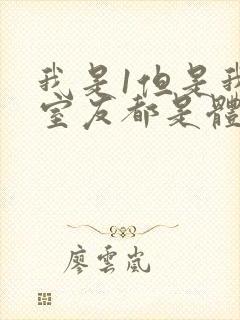 我是1但是我
室友都是體
廖雲嵐